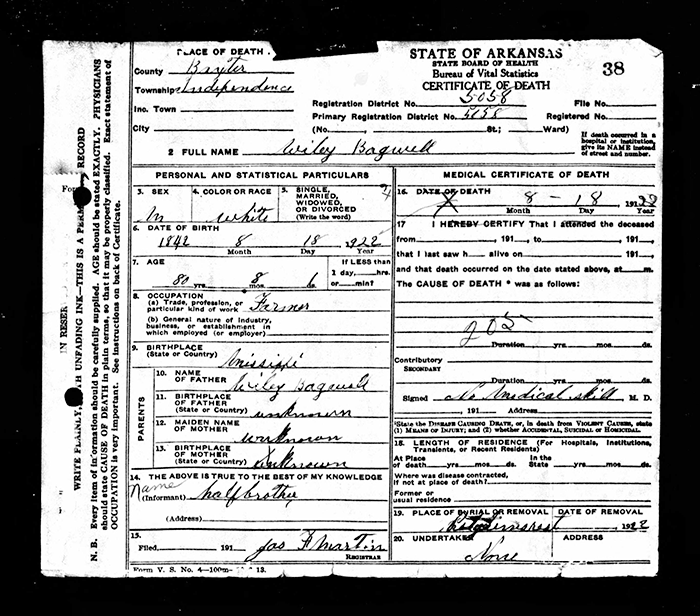 PLACE OF DEATH.
County Baxter
Township Independence
Inc. Town
City
STATE OF ARKANSAS
STATE BOARD OF HEALTH
Bureau of Vital Statistics
CERTIFICATE OF DEATH
38
Registration District No. 5058 File No.
Primary Registration District No. 5058 Registered No.
(No. St.; Ward)
If death occurred in a
hospital or institution,
give its NAME instead
of street and number.
2 FULL NAME Wiley Bagwell
PERSONAL AND STATISTICAL PARTICULARS
3. SEX M
4. COLOR OR RACE White
5. SINGLE,
MARRIED,
WIDOWED,
OR DIVORCED
(Write the word)
6. DATE OF BIRTH
1842 8 18 1922
Month Day Year
7. AGE
80 yrs. 8 mos.
If LESS than
1 day, hrs.
or min.?
8. OCCUPATION
(a) Trade, profession, or
particular kind of work Farmer
(b) General nature of Industry,
business, or establishment in
which employed (or employer)
9. BIRTHPLACE
(State or Country) Missippi
PARENTS
10. NAME
OF FATHER Wiley Bagwell
11. BIRTHPLACE
OF FATHER
(State or Country) unknown
12. MAIDEN NAME
OF MOTHER unknown
13. BIRTHPLACE
OF MOTHER
(State or Country) unknown
14. THE ABOVE IS TRUE TO THE BEST OF MY KNOWLEDGE
Name
(Informant) half brother
(Address)
15.
Filed, 191 Jas H Martin
REGISTRAR
Form V. S. No. 4—100m— 13.
MEDICAL CERTIFICATE OF DEATH
16. DATE OF DEATH
X 8 - 18 1922
Month Day Year
17 I HEREBY CERTIFY That I attended the deceased
from , 191 , to , 191 ,
that I last saw h alive on , 191 ,
and that death occurred on the date stated above, at m.
The CAUSE OF DEATH * was as follows:
205
Duration yrs. mos. ds.
Contributory
SECONDARY
Duration yrs. mos. ds.
Signed No Medical skill M. D.
, 191 Address
*State the DISEASE CAUSING DEATH, or, in death from VIOLENT CAUSES, state
(1) MEANS OF INJURY; and (2) whether ACCIDENTAL, SUICIDAL OR HOMICIDAL.
18. LENGTH OF RESIDENCE (For Hospitals, Institutions,
Transients, or Recent Residents)
At Place In the
of death yrs. mos. ds. State yrs. mos. ds.
Where was disease contracted,
if not at place of death?
Former or
usual residence
19. PLACE OF BURIAL OR REMOVAL DATE OF REMOVAL
1922
20. UNDERTAKER ADDRESS
None
IN RESER
For
WRITE PLAINLY, WITH UNFADING INK—THIS IS A PERM RECORD
N. B. Every item of information should be carefully supplied. AGE should be stated EXACTLY. PHYSICIANS
should state CAUSE OF DEATH in plain terms, so that it may be properly classified. Exact statement of
OCCUPATION is very important. See instructions on back of Certificate.